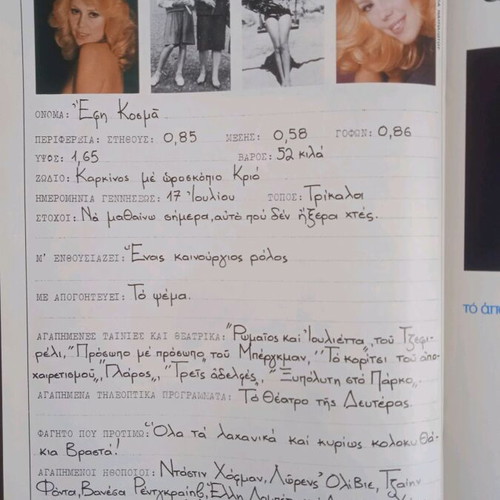 ΟΝΟΜΑ: Ἔφη Κοσμᾶ
ΠΕΡΙΦΕΡΕΙΑ: ΣΤΗΘΟΥΣ: 0,85 ΜΕΣΗΣ: 0,58 ΓΟΦΩΝ: 0,86
ΥΨΟΣ: 1,65 ΒΑΡΟΣ: 52 κιλά
ΖΩΔΙΟ: Καρκίνος μέ ὡροσκόπιο Κριό
ΗΜΕΡΟΜΗΝΙΑ ΓΕΝΝΗΣΕΩΣ: 17 Ἰουλίου ΤΟΠΟΣ: Τρίκαλα
ΣΤΟΧΟΙ: Νά μαθαίνω σήμερα, αὐτό πού δέν ἤξερα χτές.
Μ' ΕΝΘΟΥΣΙΑΖΕΙ: Ἕνας καινούργιος ρόλος
ΜΕ ΑΠΟΓΟΗΤΕΥΕΙ: Τό ψέμα.
ΑΓΑΠΗΜΕΝΕΣ ΤΑΙΝΙΕΣ ΚΑΙ ΘΕΑΤΡΙΚΑ: "Ρωμαῖος και Ἰουλιέττα" τοῦ Τζεφι-
ρέλι, "Πρόσωπο μέ πρόσωπο" τοῦ Μπέργκμαν, "Τό κορίτσι τοῦ ἀπο-
χαιρετισμοῦ", "Γλάρος", "Τρεῖς ἀδελφές", "Ξυπόλυτη στό Πάρκο".
ΑΓΑΠΗΜΕΝΑ ΤΗΛΕΟΠΤΙΚΑ ΠΡΟΓΡΑΜΜΑΤΑ: Τό Θέατρο τῆς Δευτέρας.
ΦΑΓΗΤΟ ΠΟΥ ΠΡΟΤΙΜΩ: Ὅλα τά λαχανικά καί κυρίως κολοκυθά-
κια βραστά!
ΑΓΑΠΗΜΕΝΟΙ ΗΘΟΠΟΙΟΙ: Ντάστιν Χόφμαν, Λώρενς Ὀλίβιε, Τζαίην
Φόντα, Βανέσα Ρέντγκραιηβ, Ἕλλη
τό ἀπο